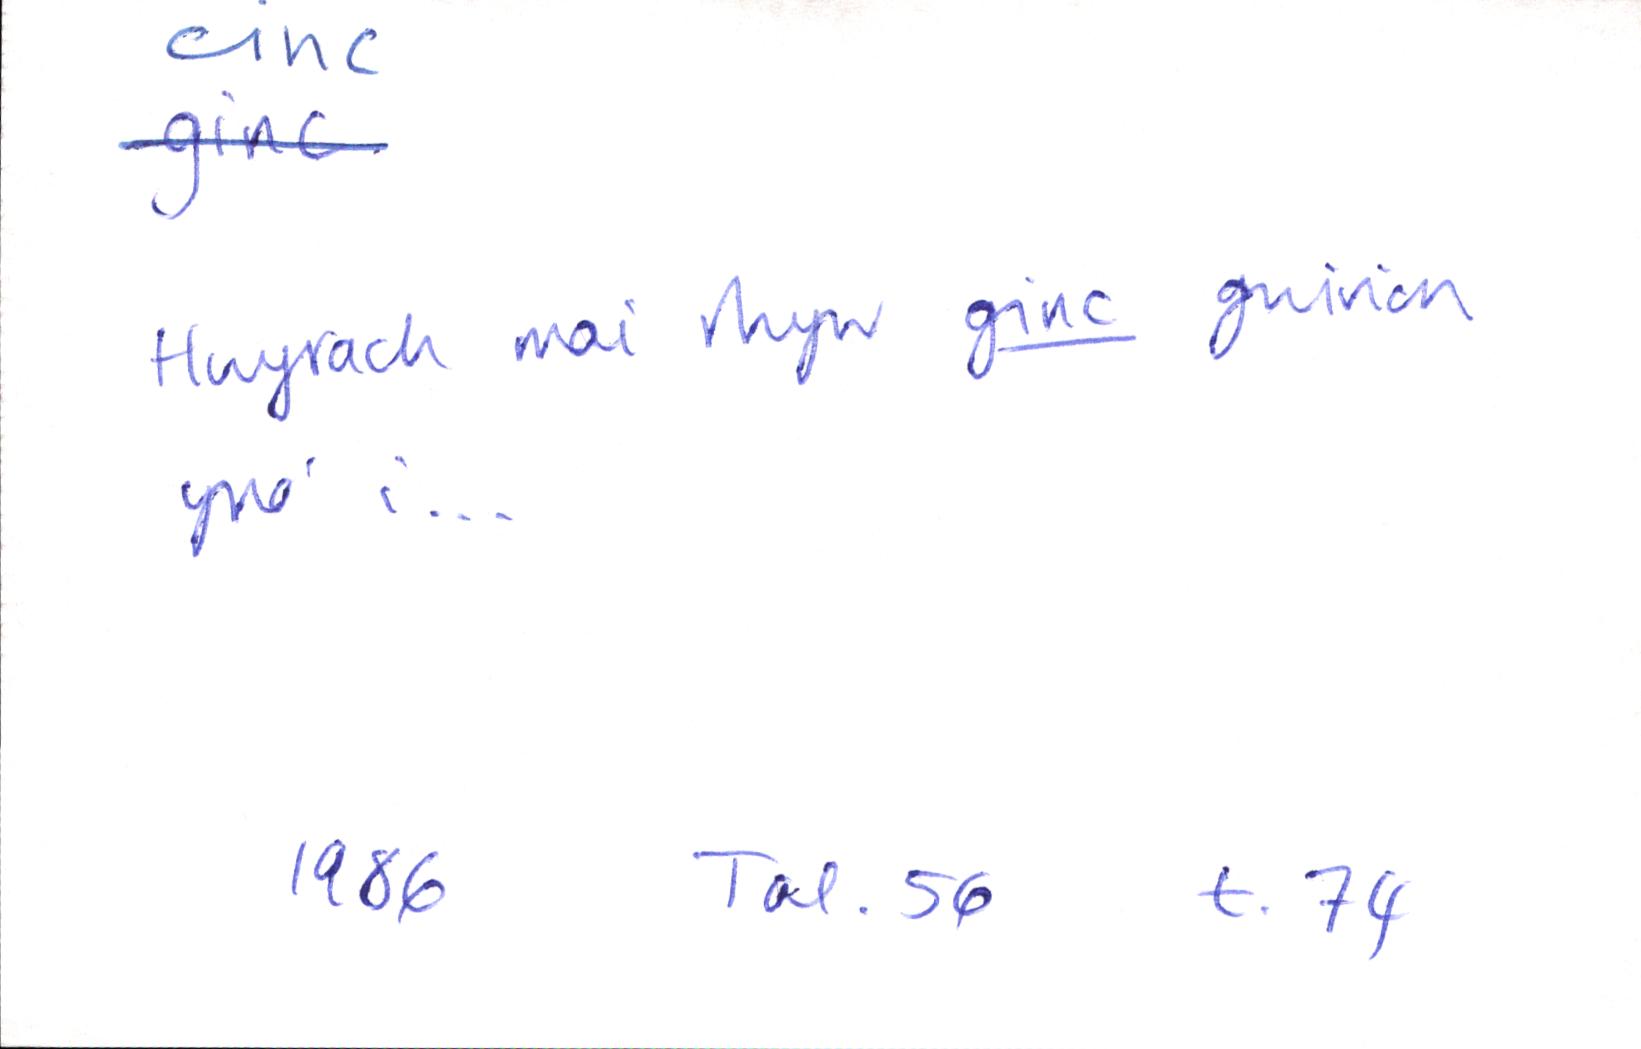 cinc
ginc
Hwyrach mai rhyw ginc gwirion
yno' i...
1986 Tal. 56 t. 74